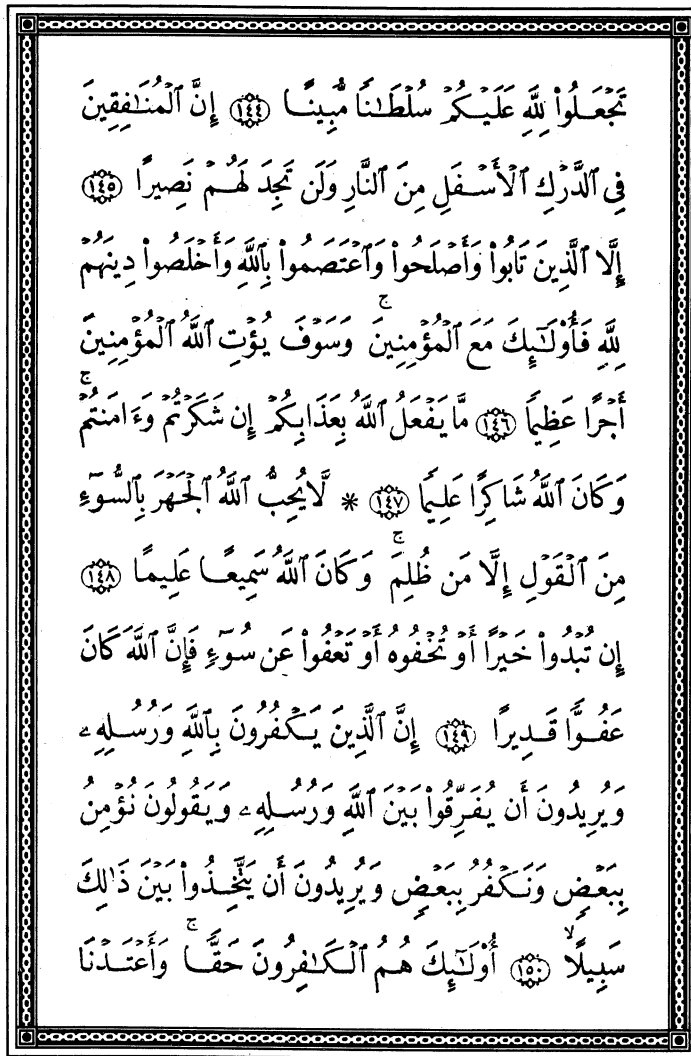 تَجۡعَلُواْ لِلَّهِ عَلَيۡكُمۡ سُلۡطَٰنٗا مُّبِينًا ١٤٤ إِنَّ ٱلۡمُنَٰفِقِينَ
فِي ٱلدَّرۡكِ ٱلۡأَسۡفَلِ مِنَ ٱلنَّارِ وَلَن تَجِدَ لَهُمۡ نَصِيرًا ١٤٥
إِلَّا ٱلَّذِينَ تَابُواْ وَأَصۡلَحُواْ وَٱعۡتَصَمُواْ بِٱللَّهِ وَأَخۡلَصُواْ دِينَهُمۡ
لِلَّهِ فَأُوْلَٰٓئِكَ مَعَ ٱلۡمُؤۡمِنِينَۚ وَسَوۡفَ يُؤۡتِ ٱللَّهُ ٱلۡمُؤۡمِنِينَ
أَجۡرًا عَظِيمٗا ١٤٦ مَّا يَفۡعَلُ ٱللَّهُ بِعَذَابِكُمۡ إِن شَكَرۡتُمۡ وَءَامَنتُمۡۚ
وَكَانَ ٱللَّهُ شَاكِرًا عَلِيمٗا ١٤٧ * لَّا يُحِبُّ ٱللَّهُ ٱلۡجَهۡرَ بِٱلسُّوٓءِ
مِنَ ٱلۡقَوۡلِ إِلَّا مَن ظُلِمَۚ وَكَانَ ٱللَّهُ سَمِيعًا عَلِيمًا ١٤٨
إِن تُبۡدُواْ خَيۡرًا أَوۡ تُخۡفُوهُ أَوۡ تَعۡفُواْ عَن سُوٓءٖ فَإِنَّ ٱللَّهَ كَانَ
عَفُوّٗا قَدِيرًا ١٤٩ إِنَّ ٱلَّذِينَ يَكۡفُرُونَ بِٱللَّهِ وَرُسُلِهِۦ
وَيُرِيدُونَ أَن يُفَرِّقُواْ بَيۡنَ ٱللَّهِ وَرُسُلِهِۦ وَيَقُولُونَ نُؤۡمِنُ
بِبَعۡضٖ وَنَكۡفُرُ بِبَعۡضٖ وَيُرِيدُونَ أَن يَتَّخِذُواْ بَيۡنَ ذَٰلِكَ
سَبِيلًاۙ ١٥٠ أُوْلَٰٓئِكَ هُمُ ٱلۡكَٰفِرُونَ حَقّٗاۚ وَأَعۡتَدۡنَا